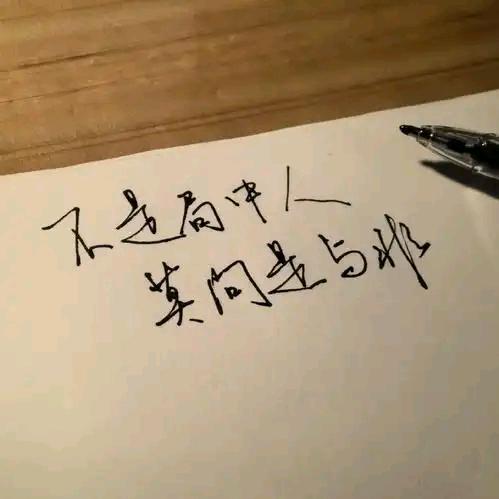 不是局中人
莫问是与非